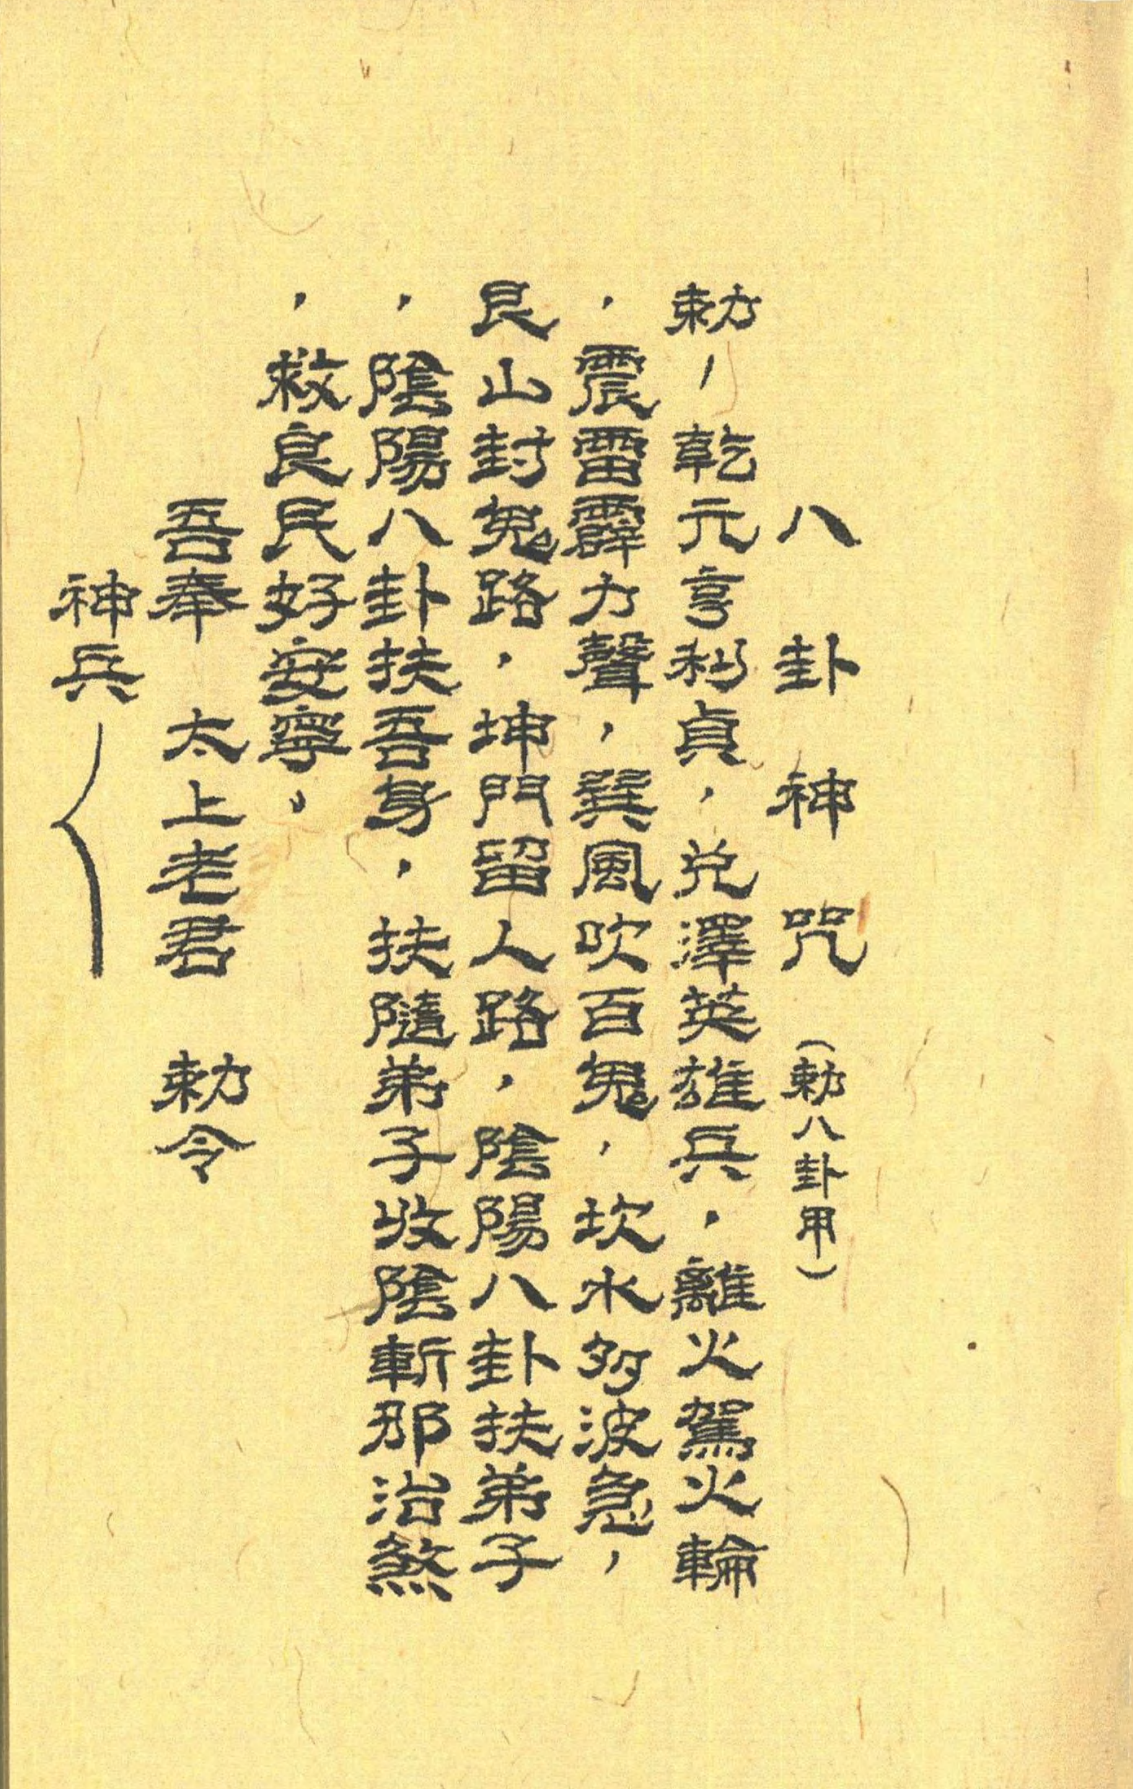 八卦神咒（勅八卦甲）
勅，乾元亨利貞，兌澤英雄兵，離火駕火輪
，震雷霹靂力聲，巽風吹百鬼，坎水夛波急，
艮山封鬼路，坤門留人路，陰陽八卦扶弟子
，陰陽八卦扶吾身，扶隨弟子收陰斬邪治煞
，救良民好安寧。
吾奉 太上老君 勅令
神兵